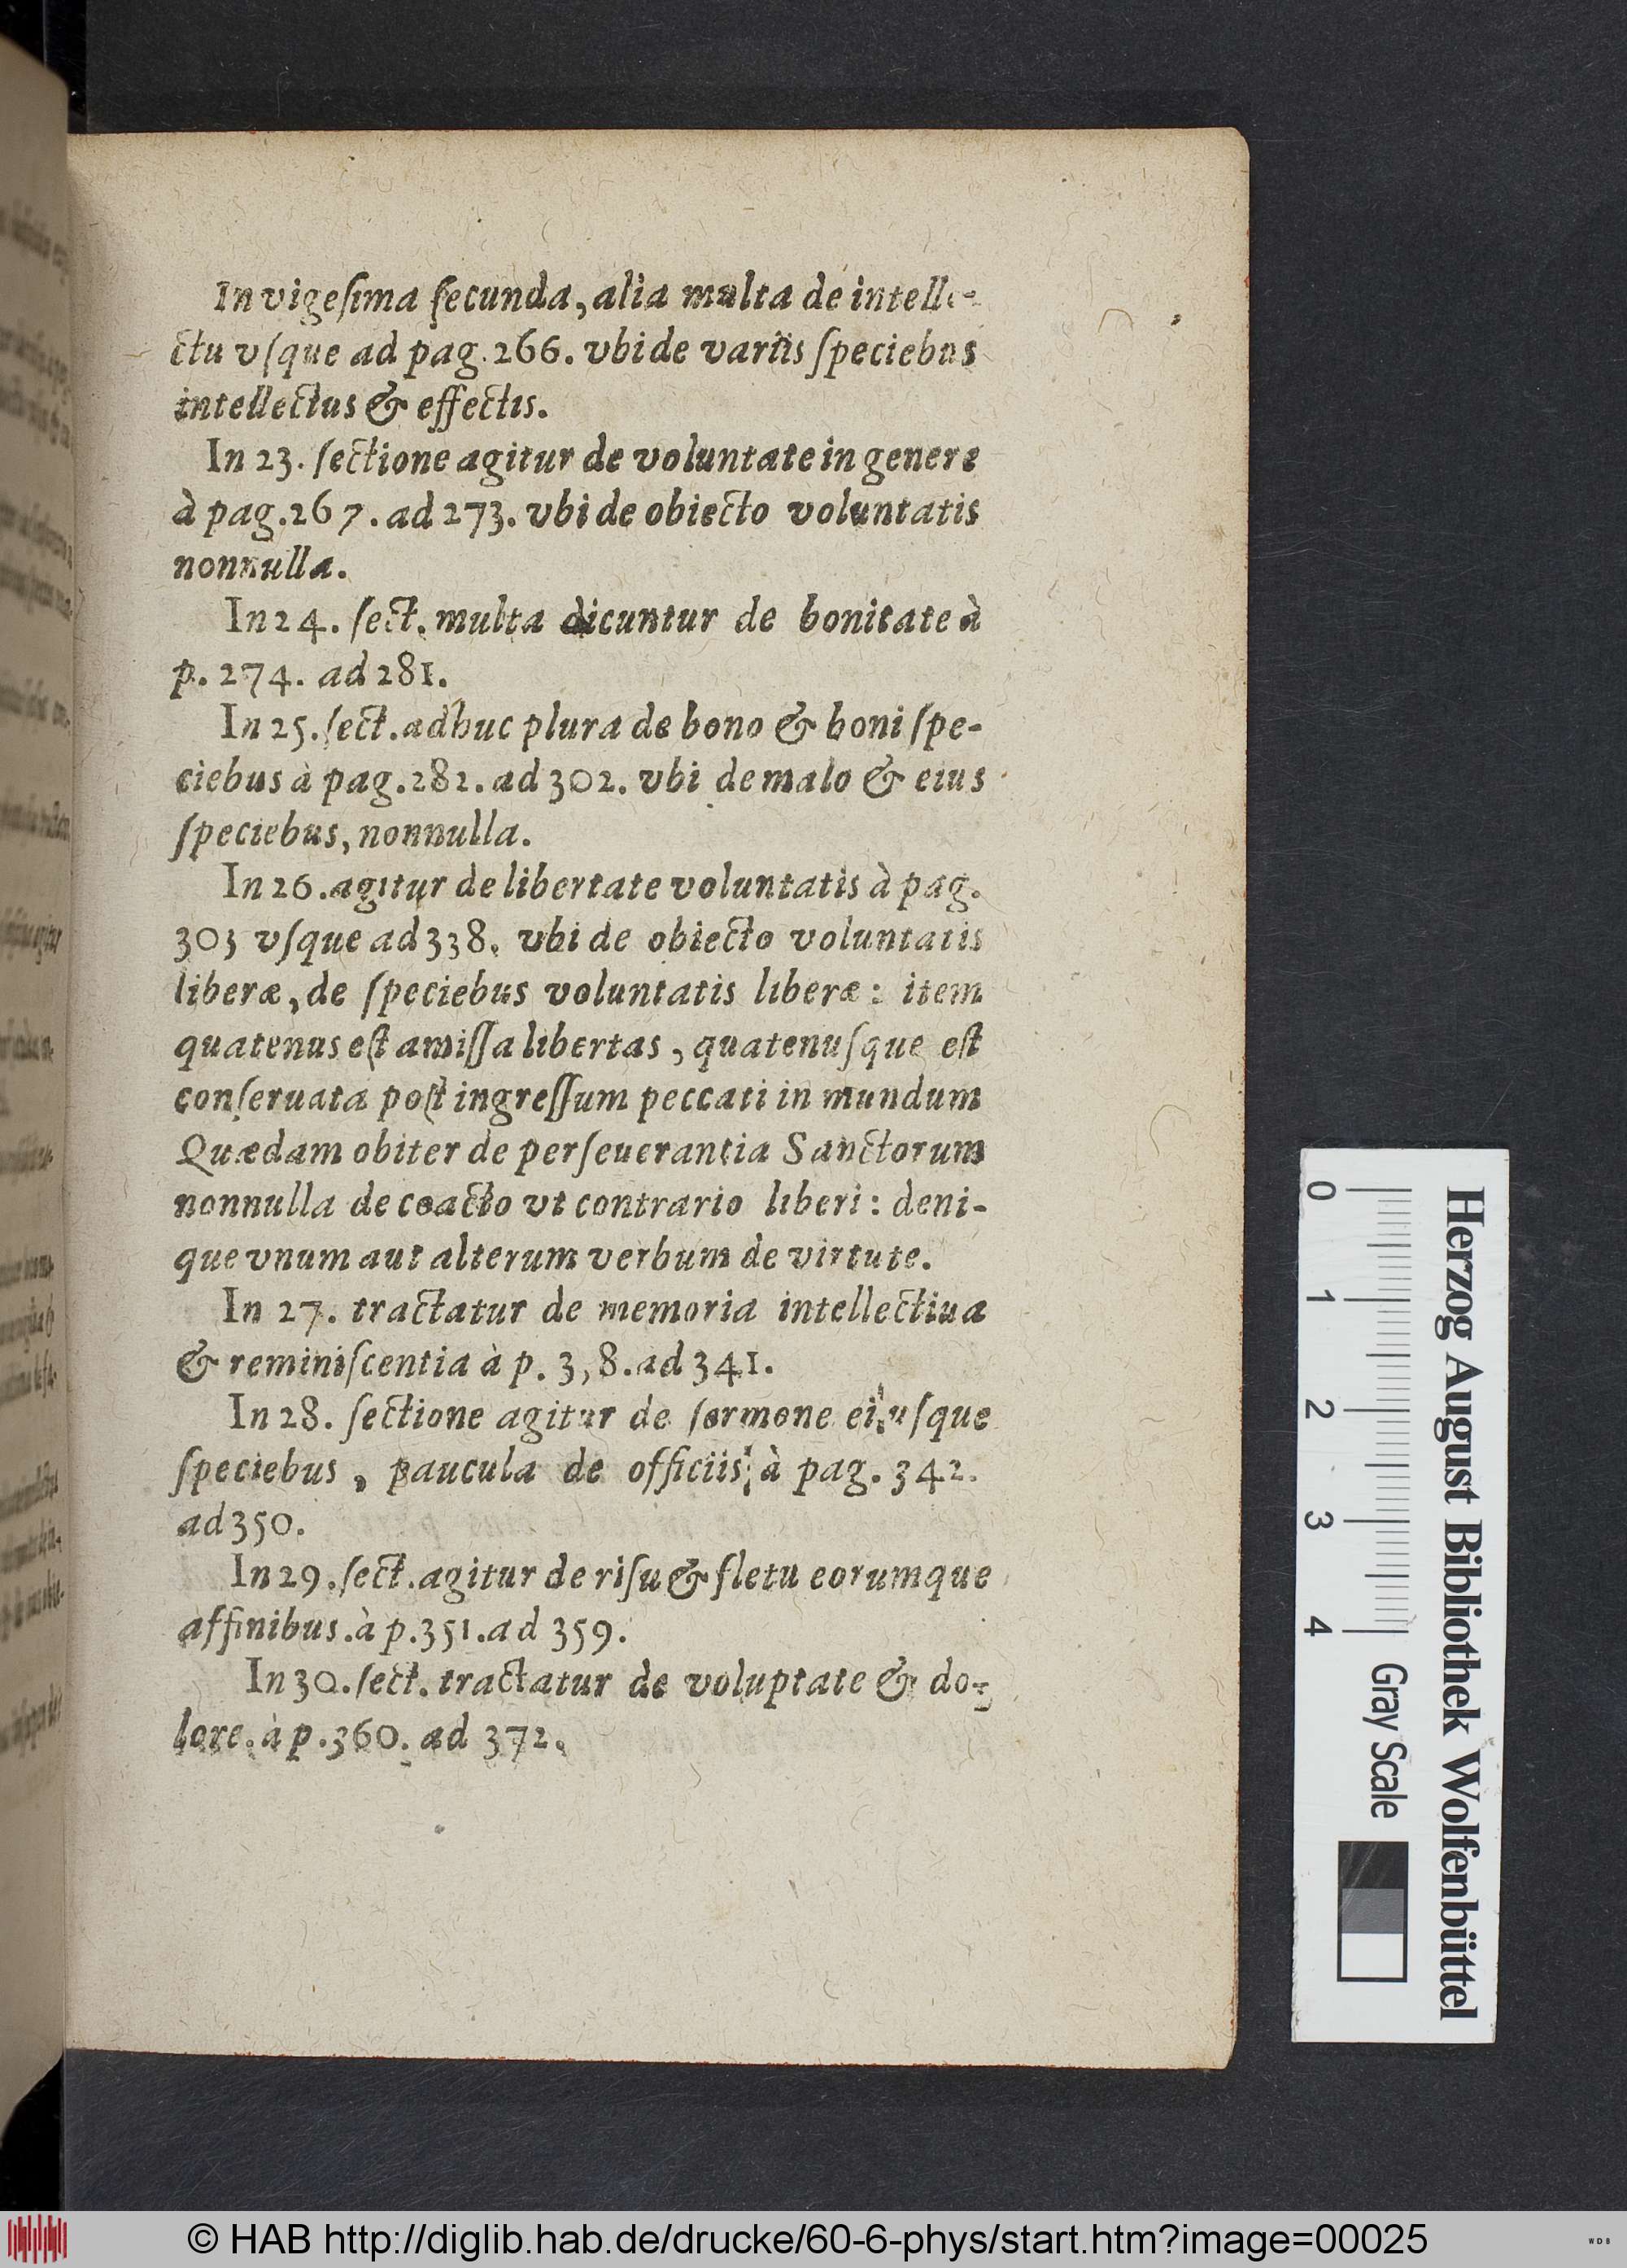 In vigeſima ſecunda, alia multa de intelle-
ctu vſque ad pag. 266. vbi de variis ſpeciebus
intellectus & effectis.
In 23. ſectione agitur de voluntate in genere
à pag. 267. ad 273. vbi de obiecto voluntatis
nonnulla.
In 24. ſect. multa dicuntur de bonitate à
p. 274. ad 281.
In 25. ſect. adhuc plura de bono & boni ſpe-
ciebus à pag. 282. ad 302. vbi de malo & eius
ſpeciebus, nonnulla.
In 26. agitur de libertate voluntatis à pag.
303 vſque ad 338. vbi de obiecto voluntatis
liberæ, de ſpeciebus voluntatis liberæ: item
quatenus eſt amiſſa libertas, quatenuſque eſt
conſeruata poſt ingreſſum peccati in mundum
Quædam obiter de perſeuerantia Sanctorum
nonnulla de coacto vt contrario liberi: deni-
que vnum aut alterum verbum de virtute.
In 27. tractatur de memoria intellectiua
& reminiſcentia à p. 3,8. ad 341.
In 28. ſectione agitur de ſermone eiuſque
ſpeciebus, paucula de officiis, à pag. 342.
ad 350.
In 29. ſect. agitur de riſu & fletu eorumque
affinibus. à p. 351. ad 359.
In 30. ſect. tractatur de voluptate & do-
lore. à p. 360. ad 372.
Herzog August Bibliothek Wolfenbüttel
0 1 2 3 4 Gray Scale
© HAB http://diglib.hab.de/drucke/60-6-phys/start.htm?image=00025